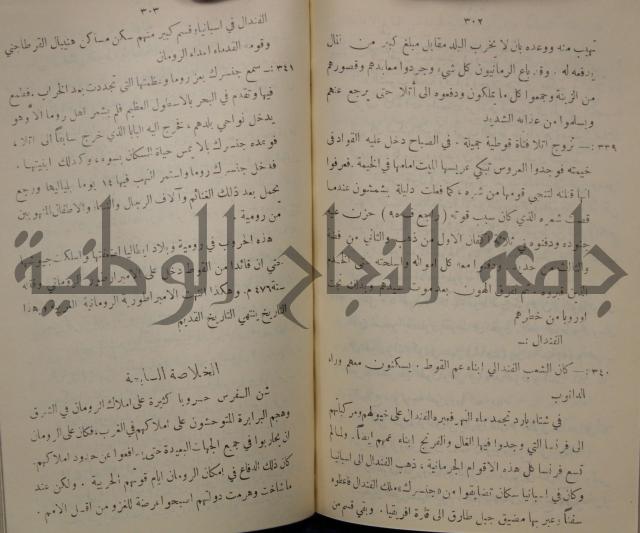 ٣٠٢
تهيب منه ووعده بان لا يخرب البلد مقابل مبلغ كبير من المال
يدفعه له . وقد باع الرومانيون كل شيء وجردوا معابدهم وقصورهم
من الزينة وجمعوا كل ما يملكون ودفعوه الى أتلا حتى يرجع عنهم
ويسلموا من عذابه الشديد
٣٣٩ :— تزوج اتلا فتاة قوطية جميلة . في الصباح دخل عليه القواد في
خيمته فوجدوا العروس تبكي عريسها الميت امامها في الخيمة . فعرفوا
انها قتلته لتنجي قومها من شره ، كما فعلت دليلة بشمشون عندما
قصت شعره الذي كان سبب قوته ( راجع ف ٩٥ ) حزن عليه
جنوده ودفنوه في ثلاثة اكفان الاول من ذهب والثاني من فضة
كل امواله واسلحته حتى الخدم
اوروبا من خطرهم
الفندال :—
٣٤٠ :— كان الشعب الفندالي ابناء عم القوط . يسكنون معهم وراء
الدانوب
في شتاء بارد تجمد ماء النهر فعبره الفندال على خيولهم ومركباتهم
الى فرنسا التي وجدوا فيها الغال والفرنج ابناء عمهم ايضاً . ولما لم
تسع فرنسا كل هذه الاقوام الجرمانية ، ذهب الفندال الى اسبانيا
وكان في اسبانيا سكان تضايقوا من «جنسرك» ملك الفندال فاعطوه
سفناً وعبر بها مضيق جبل طارق الى قارة افريقيا . وبقي قسم من
٣٠٣
الفندال في اسبانيا وقسم كبير منهم سكن مساكن هنيبال القرطاجني
وقومه القدماء اعداء الرومان
٣٤١ :— سمع جنسرك بعز روما وعظمتها التي تجددت بعد الخراب . فطمع
فيها وتقدم في البحر بالاسطول العظيم فلم يشعر اهل روما الا وهو
يدخل نواحي بلدهم ، فخرج اليه البابا الذي خرج سابقاً الى اتلا ،
فوعده جنسرك بالا يمس حياة السكان بسوء ، وكذلك ابنيتها .
فدخل جنسرك روما واستمر النهب فيها ١٤ يوماً بلياليها ورجع
يحمل بعد ذلك الغنائم وآلاف الرجال والنساء والاطفال المنهوبين
من رومية
هذه الحروب في رومية وبلاد ايطاليا
حتى ان قائداً من القوط دخل على الامبراطور الروماني وقتله
سنة ٤٧٦ م . وهكذا انتهت الامبراطورية الرومانية الغربية وبهذا
التاريخ ينتهي التاريخ القديم
الخلاصة السابعة
شن الفرس حروباً كثيرة على املاك الرومان في الشرق
وهجم البرابرة المتوحشون على املاكهم في الغرب ، فكان على الرومان
ان يحاربوا في جميع الجهات البعيدة حتى يدافعوا عن حدود املاكهم.
كان ذلك الدفاع في امكان الرومان ايام قوتهم الحربية . ولكن عند
ما شاخت وهرمت دولتهم اصبحوا عرضة للغزو من اقل الامم .
جامعة النجاح الوطنية